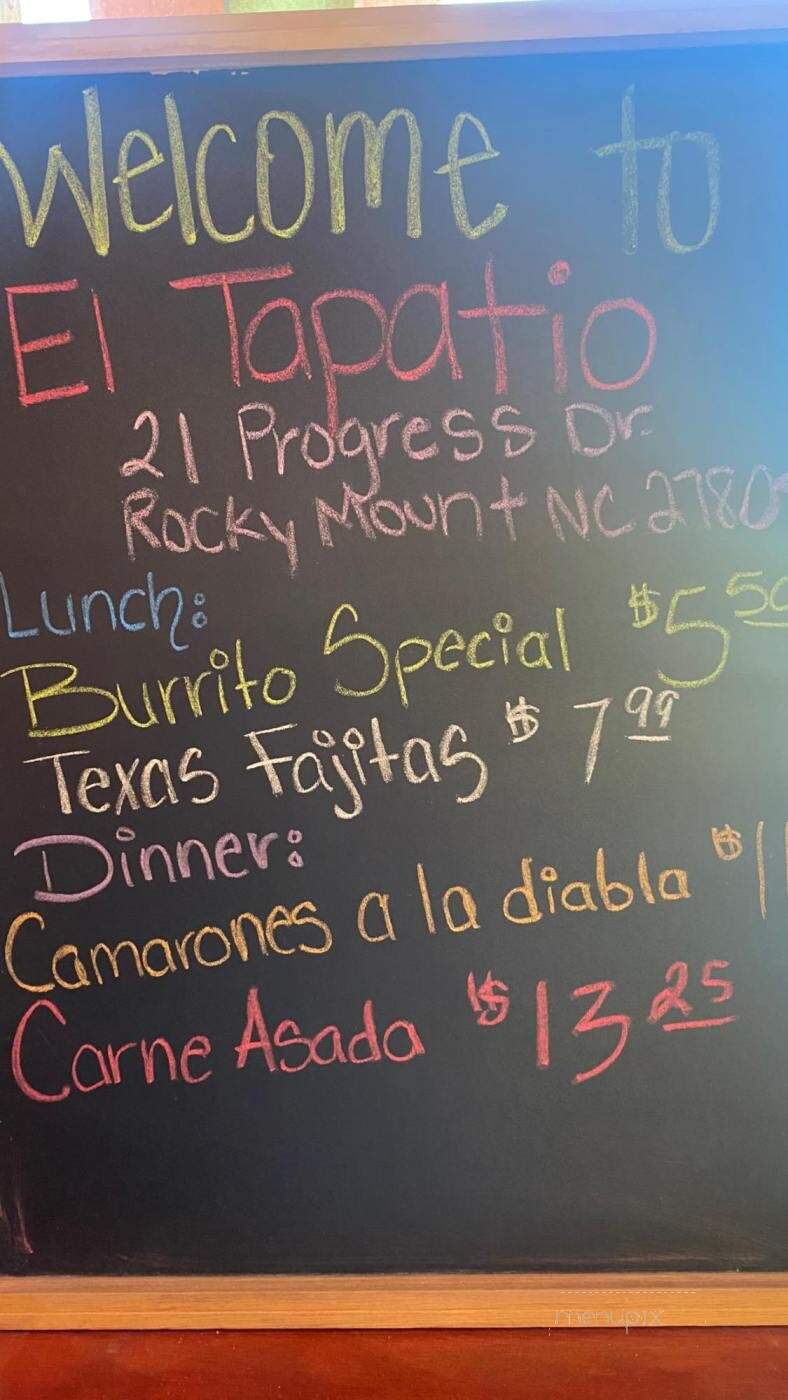 Welcome to
El Tapatio
21 Progress Dr.
Rocky Mount NC 2780
Lunch:
Burrito Special $5 50
Texas Fajitas $ 7 99
Dinner:
Camarones a la diabla $11
Carne Asada $13 25
menupix